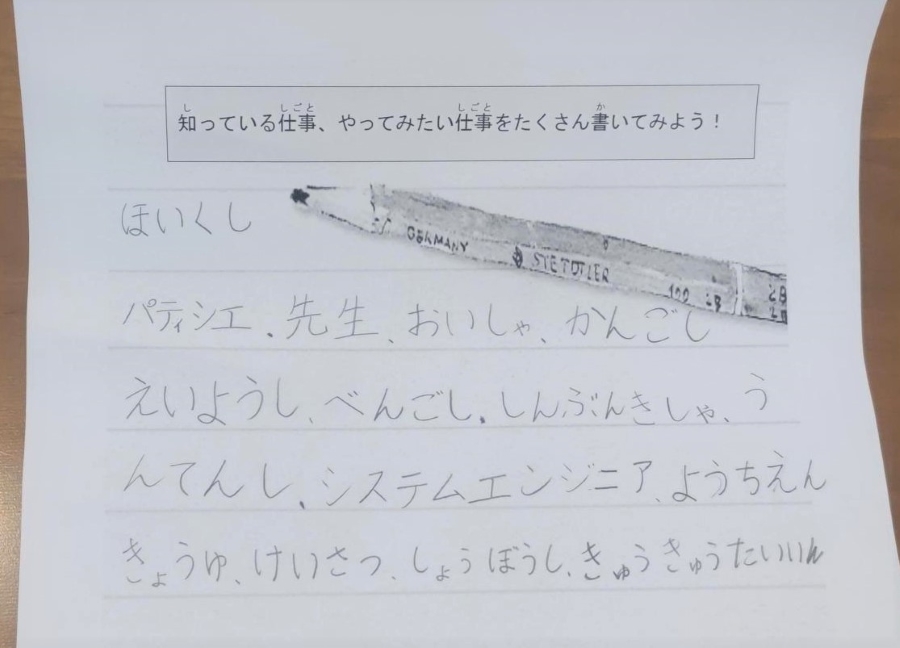 知っている仕事、やってみたい仕事をたくさん書いてみよう！
ほいくし
GERMANY STETDTLER 100 2B 2B
パティシエ、先生、おいしゃ、かんごし
えいようし、べんごし、しんぶんきしゃ、う
んてんし、システムエンジニア、ようちえん
きょうゆ、けいさつ、しょうぼうし、きゅうきゅうたいいん